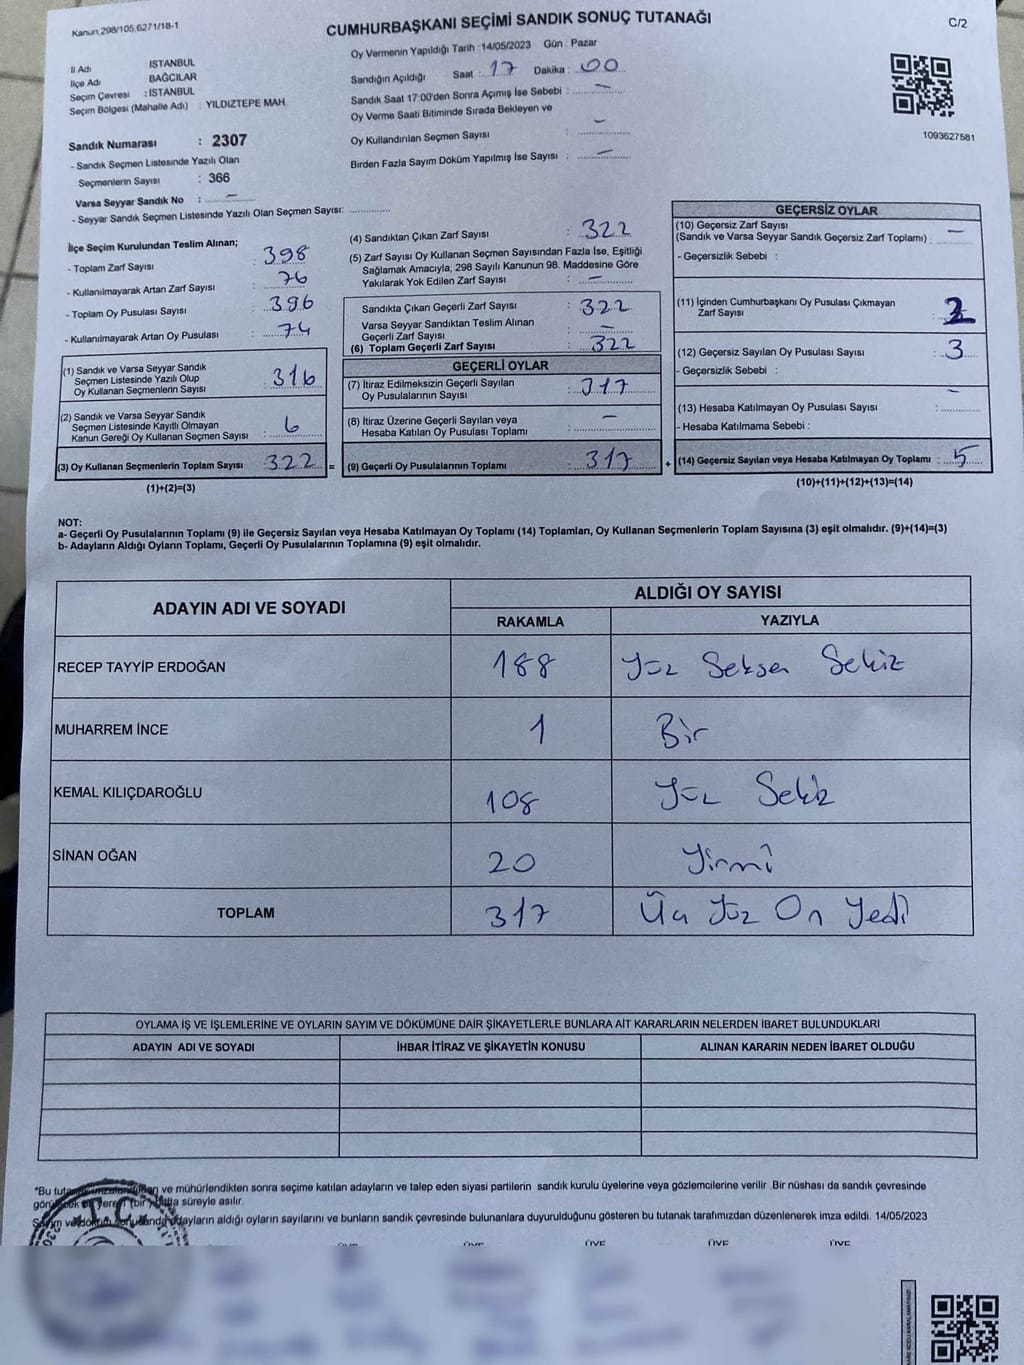 Kanun,298/105,6271/18-1
CUMHURBAŞKANI SEÇİMİ SANDIK SONUÇ TUTANAĞI
C/2
Oy Vermenin Yapıldığı Tarih : 14/05/2023 Gün : Pazar
İl Adı İSTANBUL
İlçe Adı BAĞCILAR
Seçim Çevresi : İSTANBUL
Seçim Bölgesi (Mahalle Adı) : YILDIZTEPE MAH.
Sandığın Açıldığı Saat : 17 Dakika : 00
Sandık Saat 17:00'den Sonra Açımış İse Sebebi : —
Oy Verme Saati Bitiminde Sırada Bekleyen ve
Oy Kullandırılan Seçmen Sayısı : —
Birden Fazla Sayım Döküm Yapılmış İse Sayısı : —
1093627581
Sandık Numarası : 2307
- Sandık Seçmen Listesinde Yazılı Olan
Seçmenlerin Sayısı : 366
Varsa Seyyar Sandık No : —
- Seyyar Sandık Seçmen Listesinde Yazılı Olan Seçmen Sayısı: ............
İlçe Seçim Kurulundan Teslim Alınan;
- Toplam Zarf Sayısı : 398
- Kullanılmayarak Artan Zarf Sayısı : 76
- Toplam Oy Pusulası Sayısı : 396
- Kullanılmayarak Artan Oy Pusulası : 74
(1) Sandık ve Varsa Seyyar Sandık
Seçmen Listesinde Yazılı Olup
Oy Kullanan Seçmenlerin Sayısı : 316
(2) Sandık ve Varsa Seyyar Sandık
Seçmen Listesinde Kayıtlı Olmayan
Kanun Gereği Oy Kullanan Seçmen Sayısı : 6
(3) Oy Kullanan Seçmenlerin Toplam Sayısı : 322 =
(1)+(2)=(3)
(4) Sandıktan Çıkan Zarf Sayısı : 322
(5) Zarf Sayısı Oy Kullanan Seçmen Sayısından Fazla İse, Eşitliği
Sağlamak Amacıyla, 298 Sayılı Kanunun 98. Maddesine Göre
Yakılarak Yok Edilen Zarf Sayısı : —
Sandıkta Çıkan Geçerli Zarf Sayısı : 322
Varsa Seyyar Sandıktan Teslim Alınan
Geçerli Zarf Sayısı : —
(6) Toplam Geçerli Zarf Sayısı : 322
GEÇERLİ OYLAR
(7) İtiraz Edilmeksizin Geçerli Sayılan
Oy Pusulalarının Sayısı : 317
(8) İtiraz Üzerine Geçerli Sayılan veya
Hesaba Katılan Oy Pusulası Toplamı : —
(9) Geçerli Oy Pusulalarının Toplamı : 317 +
GEÇERSİZ OYLAR
(10) Geçersiz Zarf Sayısı
(Sandık ve Varsa Seyyar Sandık Geçersiz Zarf Toplamı) : —
- Geçersizlik Sebebi :
(11) İçinden Cumhurbaşkanı Oy Pusulası Çıkmayan
Zarf Sayısı : 2
(12) Geçersiz Sayılan Oy Pusulası Sayısı : 3
- Geçersizlik Sebebi :
(13) Hesaba Katılmayan Oy Pusulası Sayısı : —
- Hesaba Katılmama Sebebi :
(14) Geçersiz Sayılan veya Hesaba Katılmayan Oy Toplamı : 5
(10)+(11)+(12)+(13)=(14)
NOT:
a- Geçerli Oy Pusulalarının Toplamı (9) ile Geçersiz Sayılan veya Hesaba Katılmayan Oy Toplamı (14) Toplamları, Oy Kullanan Seçmenlerin Toplam Sayısına (3) eşit olmalıdır. (9)+(14)=(3)
b- Adayların Aldığı Oyların Toplamı, Geçerli Oy Pusulalarının Toplamına (9) eşit olmalıdır.
ADAYIN ADI VE SOYADI ALDIĞI OY SAYISI
RAKAMLA YAZIYLA
RECEP TAYYİP ERDOĞAN 188 Yüz Seksen Sekiz
MUHARREM İNCE 1 Bir
KEMAL KILIÇDAROĞLU 108 Yüz Sekiz
SİNAN OĞAN 20 Yirmi
TOPLAM 317 Üç Yüz On Yedi
OYLAMA İŞ VE İŞLEMLERİNE VE OYLARIN SAYIM VE DÖKÜMÜNE DAİR ŞİKAYETLERLE BUNLARA AİT KARARLARIN NELERDEN İBARET BULUNDUKLARI
ADAYIN ADI VE SOYADI İHBAR İTİRAZ VE ŞİKAYETİN KONUSU ALINAN KARARIN NEDEN İBARET OLDUĞU
*Bu ve mühürlendikten sonra seçime katılan adayların ve talep eden siyasi partilerin sandık kurulu üyelerine veya gözlemcilerine verilir .Bir nüshası da sandık çevresinde
bir yere (bir) hafta süreyle asılır.
Sayım ve adayların aldığı oyların sayılarını ve bunların sandık çevresinde bulunanlara duyurulduğunu gösteren bu tutanak tarafımızdan düzenlenerek imza edildi. 14/05/2023
T.C.
ÜYE ÜYE ÜYE ÜYE ÜYE